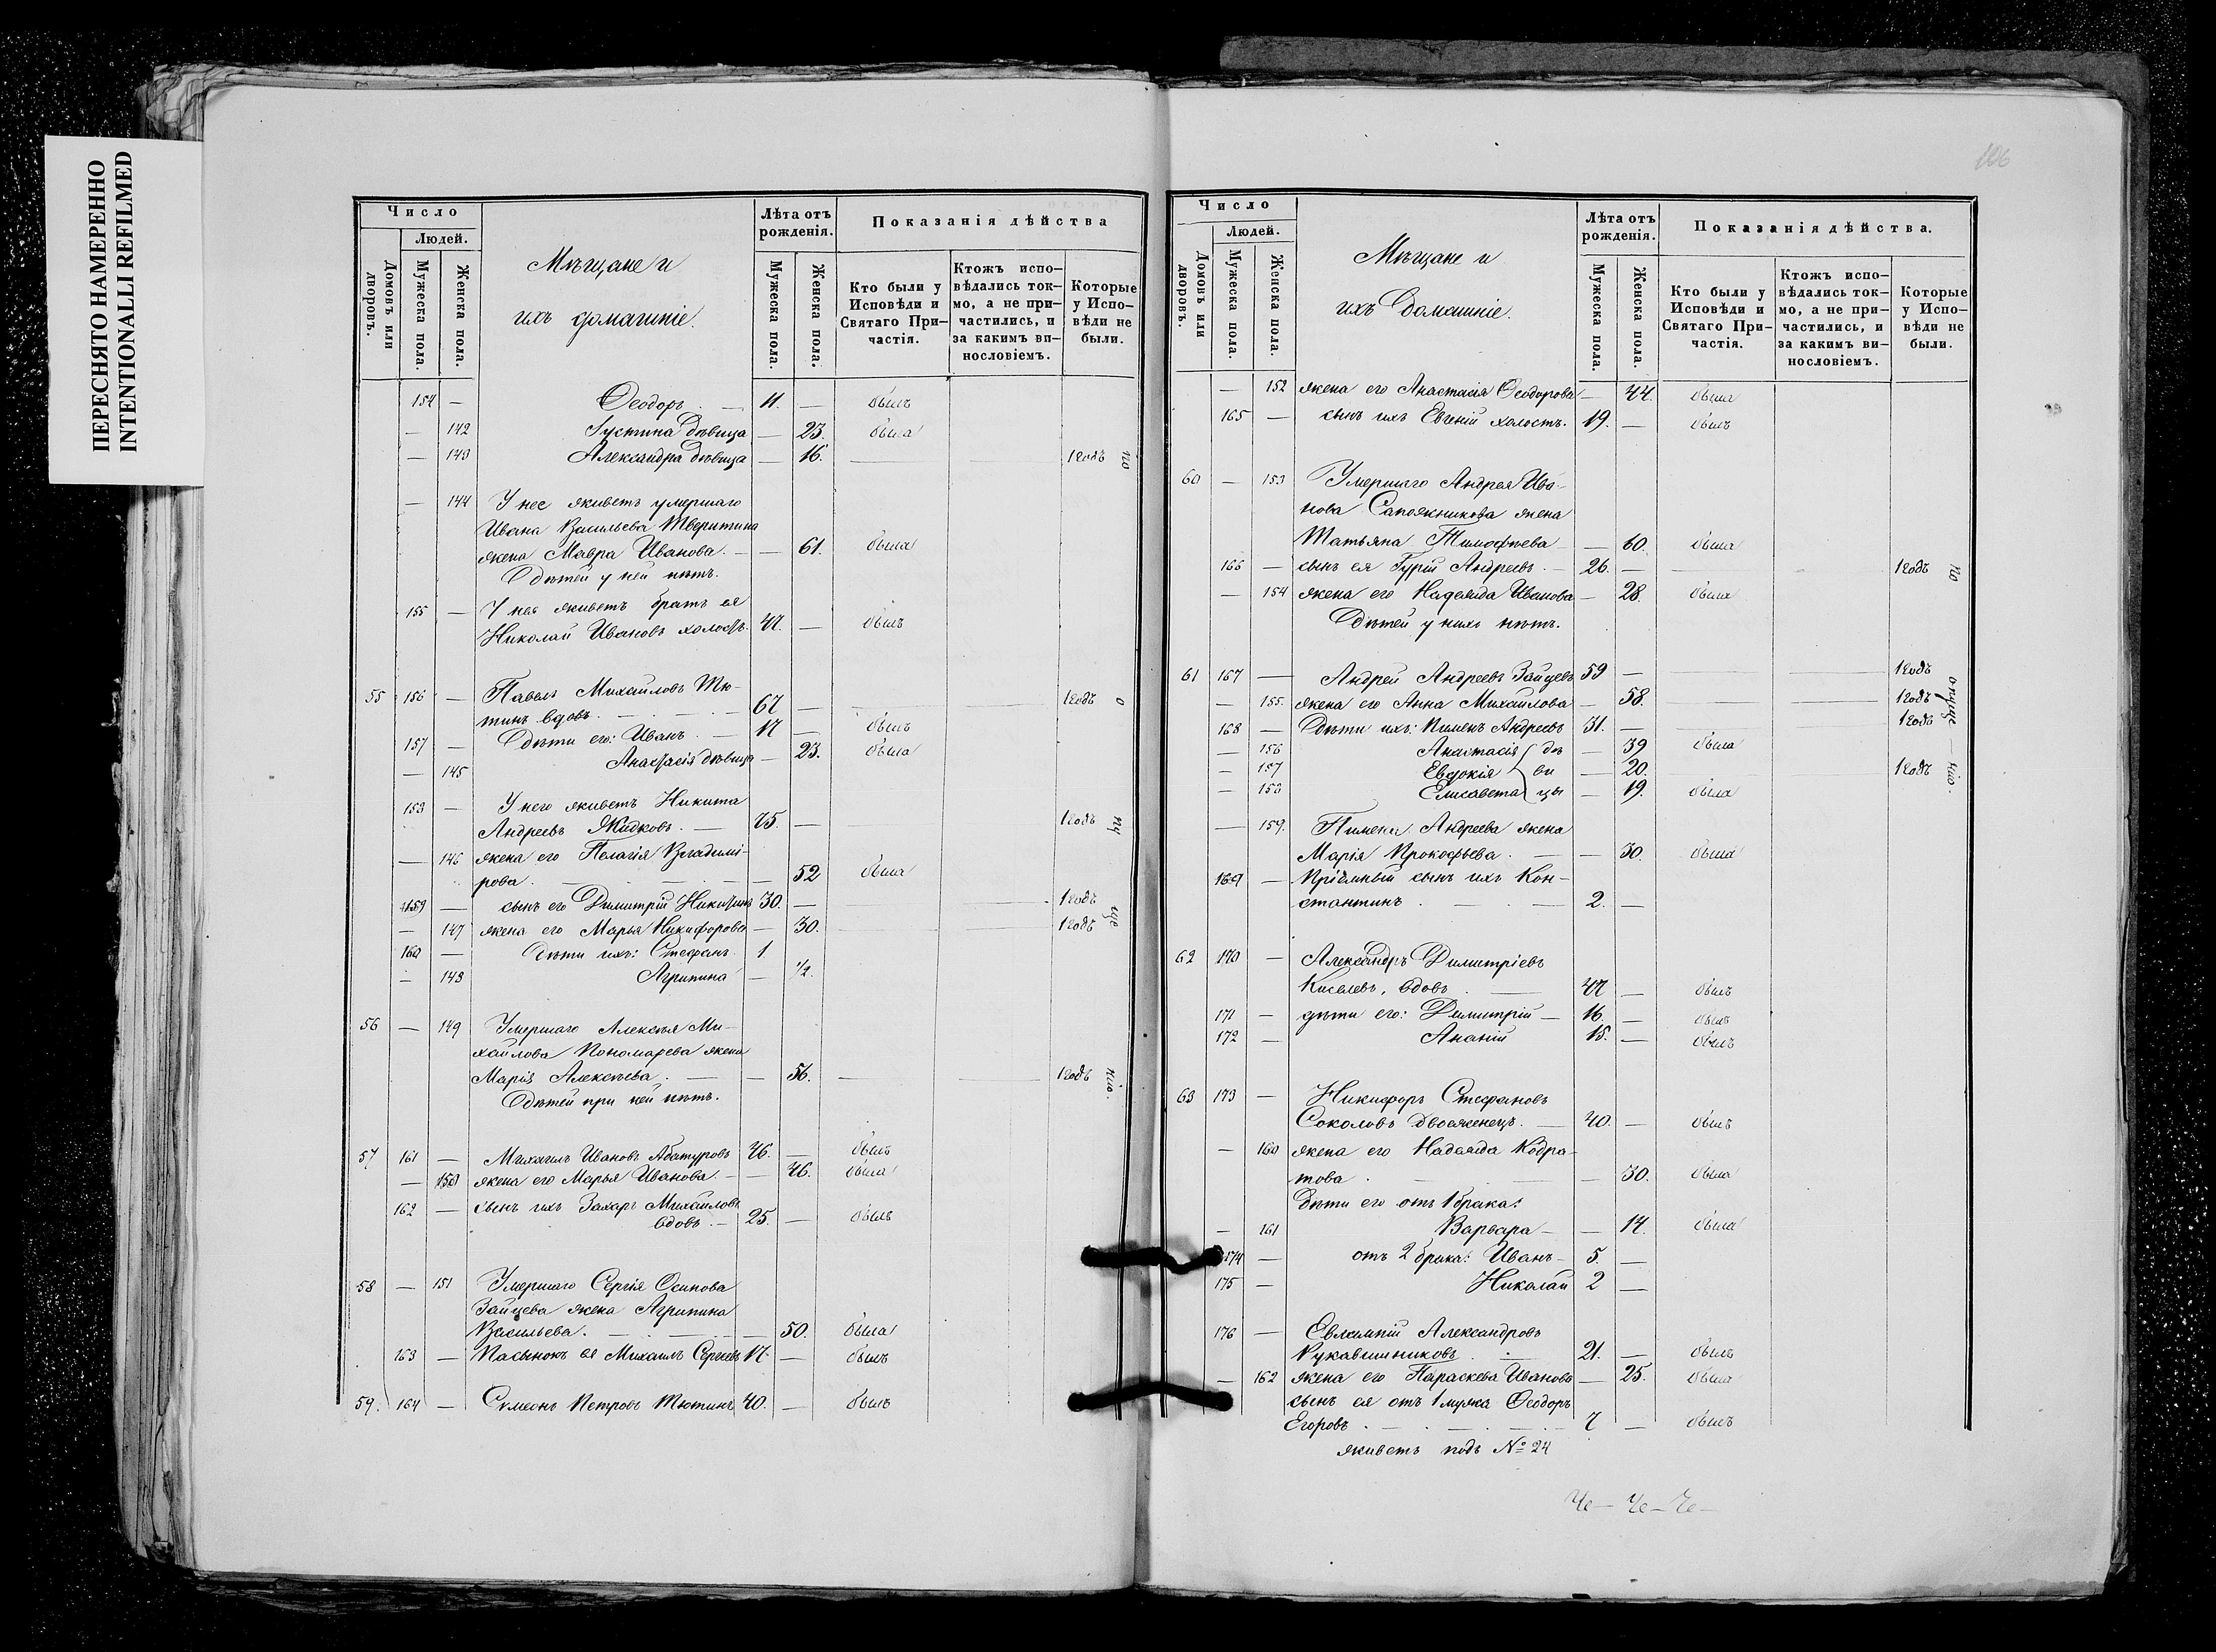 ПЕРЕСНЯТО НАМЕРЕННО
INTENTIONALLI REFILMED
Число
Людей.
Домовъ или дворовъ.
Мужеска пола.
Женска пола.
Мѣщане и
ихъ домашніе.
Лѣта отъ рожденія.
Мужеска пола.
Женска пола.
Показанія дѣйства
Кто были у Исповѣди и Святаго Причастія.
Ктожъ исповѣдались токмо, а не причастились, и за какимъ винословіемъ.
Которые у Исповѣди не были.
154 — Ѳеодоръ — 11. — былъ
— 142 Іустина дѣвица — 23. была
— 143 Александра дѣвица — 16. — 1 годъ по
— 144 У нее живетъ умершаго
Ивана Васильева Тверитина
жена Мавра Иванова. — — 61. была
Дѣтей у ней нѣтъ.
155 — У нея живетъ братъ ея
Николай Ивановъ холостъ. 47. — былъ
55 156 — Павелъ Михайловъ Тю-
тинъ вдовъ. — 67 — 1 годъ о
157 — Дѣти его: Иванъ. — 17 — былъ
— 145 Анастасія дѣвица — 23. была
158 — У него живетъ Никита
Андреевъ Жидковъ. — 75. — 1 годъ пу
— 146 жена его Пелагія Владимі-
рова. — — 52 была
159 — сынъ его Димитрій Никитинъ 30. — 1 годъ
— 147 жена его Марья Никифорова — 30. 1 годъ ще
160 — Дѣти ихъ: Стефанъ 1.
— 148 Агрипина — 1/2.
56 — 149 Умершаго Алексѣя Ми-
хайлова Пономарева жена
Марія Алексѣева. — — 56. — 1 годъ нію.
Дѣтей при ней нѣтъ.
57 161 — Михаилъ Ивановъ Абатуровъ 46. — былъ
— 150 жена его Марья Иванова. — — 46. была
162 — сынъ ихъ Захаръ Михайловъ
вдовъ. — 25. — былъ
58 — 151 Умершаго Сергія Осипова
Зайцева жена Агрипина
Васильева. — — 50. была
163 — Пасынокъ ея Михаилъ Сергеевъ 17. — былъ
59. 164 — Симеонъ Петровъ Тютинъ 40. — былъ
106
Число
Людей.
Домовъ или дворовъ.
Мужеска пола.
Женска пола.
Мѣщане и
ихъ домашніе.
Лѣта отъ рожденія.
Мужеска пола.
Женска пола.
Показанія дѣйства.
Кто были у Исповѣди и Святаго Причастія.
Ктожъ исповѣдались токмо, а не причастились, и за какимъ винословіемъ.
Которые у Исповѣди не были.
— 152 жена его Анастасія Ѳеодорова — 44. была
165 — сынъ ихъ Евгеній холостъ. 19. — былъ
60 — 153 Умершаго Андрея Ива-
нова Сапожникова жена
Татьяна Тимофѣева — — 60. была
166 — сынъ ея Гурій Андреевъ. — 26. — 1 годъ по
— 154 жена его Надежда Иванова — 28. была
Дѣтей у нихъ нѣтъ.
61 167 — Андрей Андреевъ Зайцевъ 59 — 1 годъ
— 155. жена его Анна Михайлова — 58. 1 годъ опуще
168 — Дѣти ихъ: Пименъ Андреевъ 31. — 1 годъ
— 156 Анастасія дѣ — 39 была
— 157 Евдокія ви — 20. 1 годъ нію.
— 158 Елисавета цы — 19. была
— 159. Пимена Андреева жена
Марія Прокофьева. — — 30. была
169 — Пріёмный сынъ ихъ Кон-
стантинъ. — 2. —
62 170 — Александръ Димитріевъ
Киселевъ, вдовъ. — 47 — былъ
171 — дѣти его: Димитрій — 16. — былъ
172 — Ананій 15. — былъ
63 173 — Никифоръ Стефановъ
Соколовъ двоеженецъ. — 40. — былъ
— 160 жена его Надежда Кодра-
това. — — 30. была
Дѣти его отъ 1 брака:
— 161 Варвара — — 14. была
174 — отъ 2 брака: Иванъ — 5. —
175 — Николай 2 —
176 — Евлампій Александровъ
Рукавишниковъ. — 21. — былъ
— 162 жена его Параскева Иванова — 25. была
сынъ ея отъ 1 мужа Ѳеодоръ
Егоровъ. — 7 — былъ
живетъ подъ № 24
Че — Че — Че —